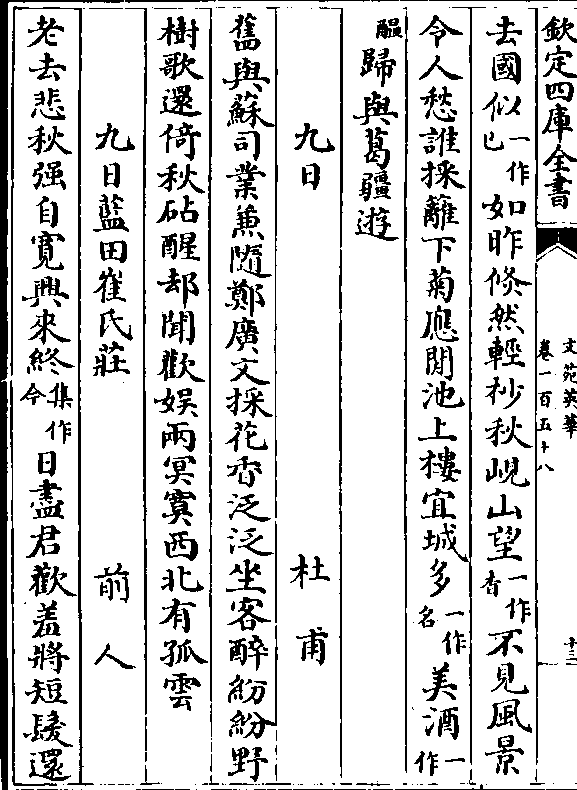 欽定四庫全書
文苑英華
卷一百五十八
十三
去國似一作已如昨倐然輕杪秋峴山望一作杳不見風景
令人愁誰採籬下菊應閒池上樓宜城多一作名美酒一作
醖歸與葛疆遊
九日 杜甫
舊與蘇司業兼隨鄭廣文採花香泛泛坐客醉紛紛野
樹歌還倚秋砧醒却聞歡娱兩冥寞西北有孤雲
九日藍田崔氏莊 前人
老去悲秋强自寬興來終集作今日盡君歡羞將短髮還